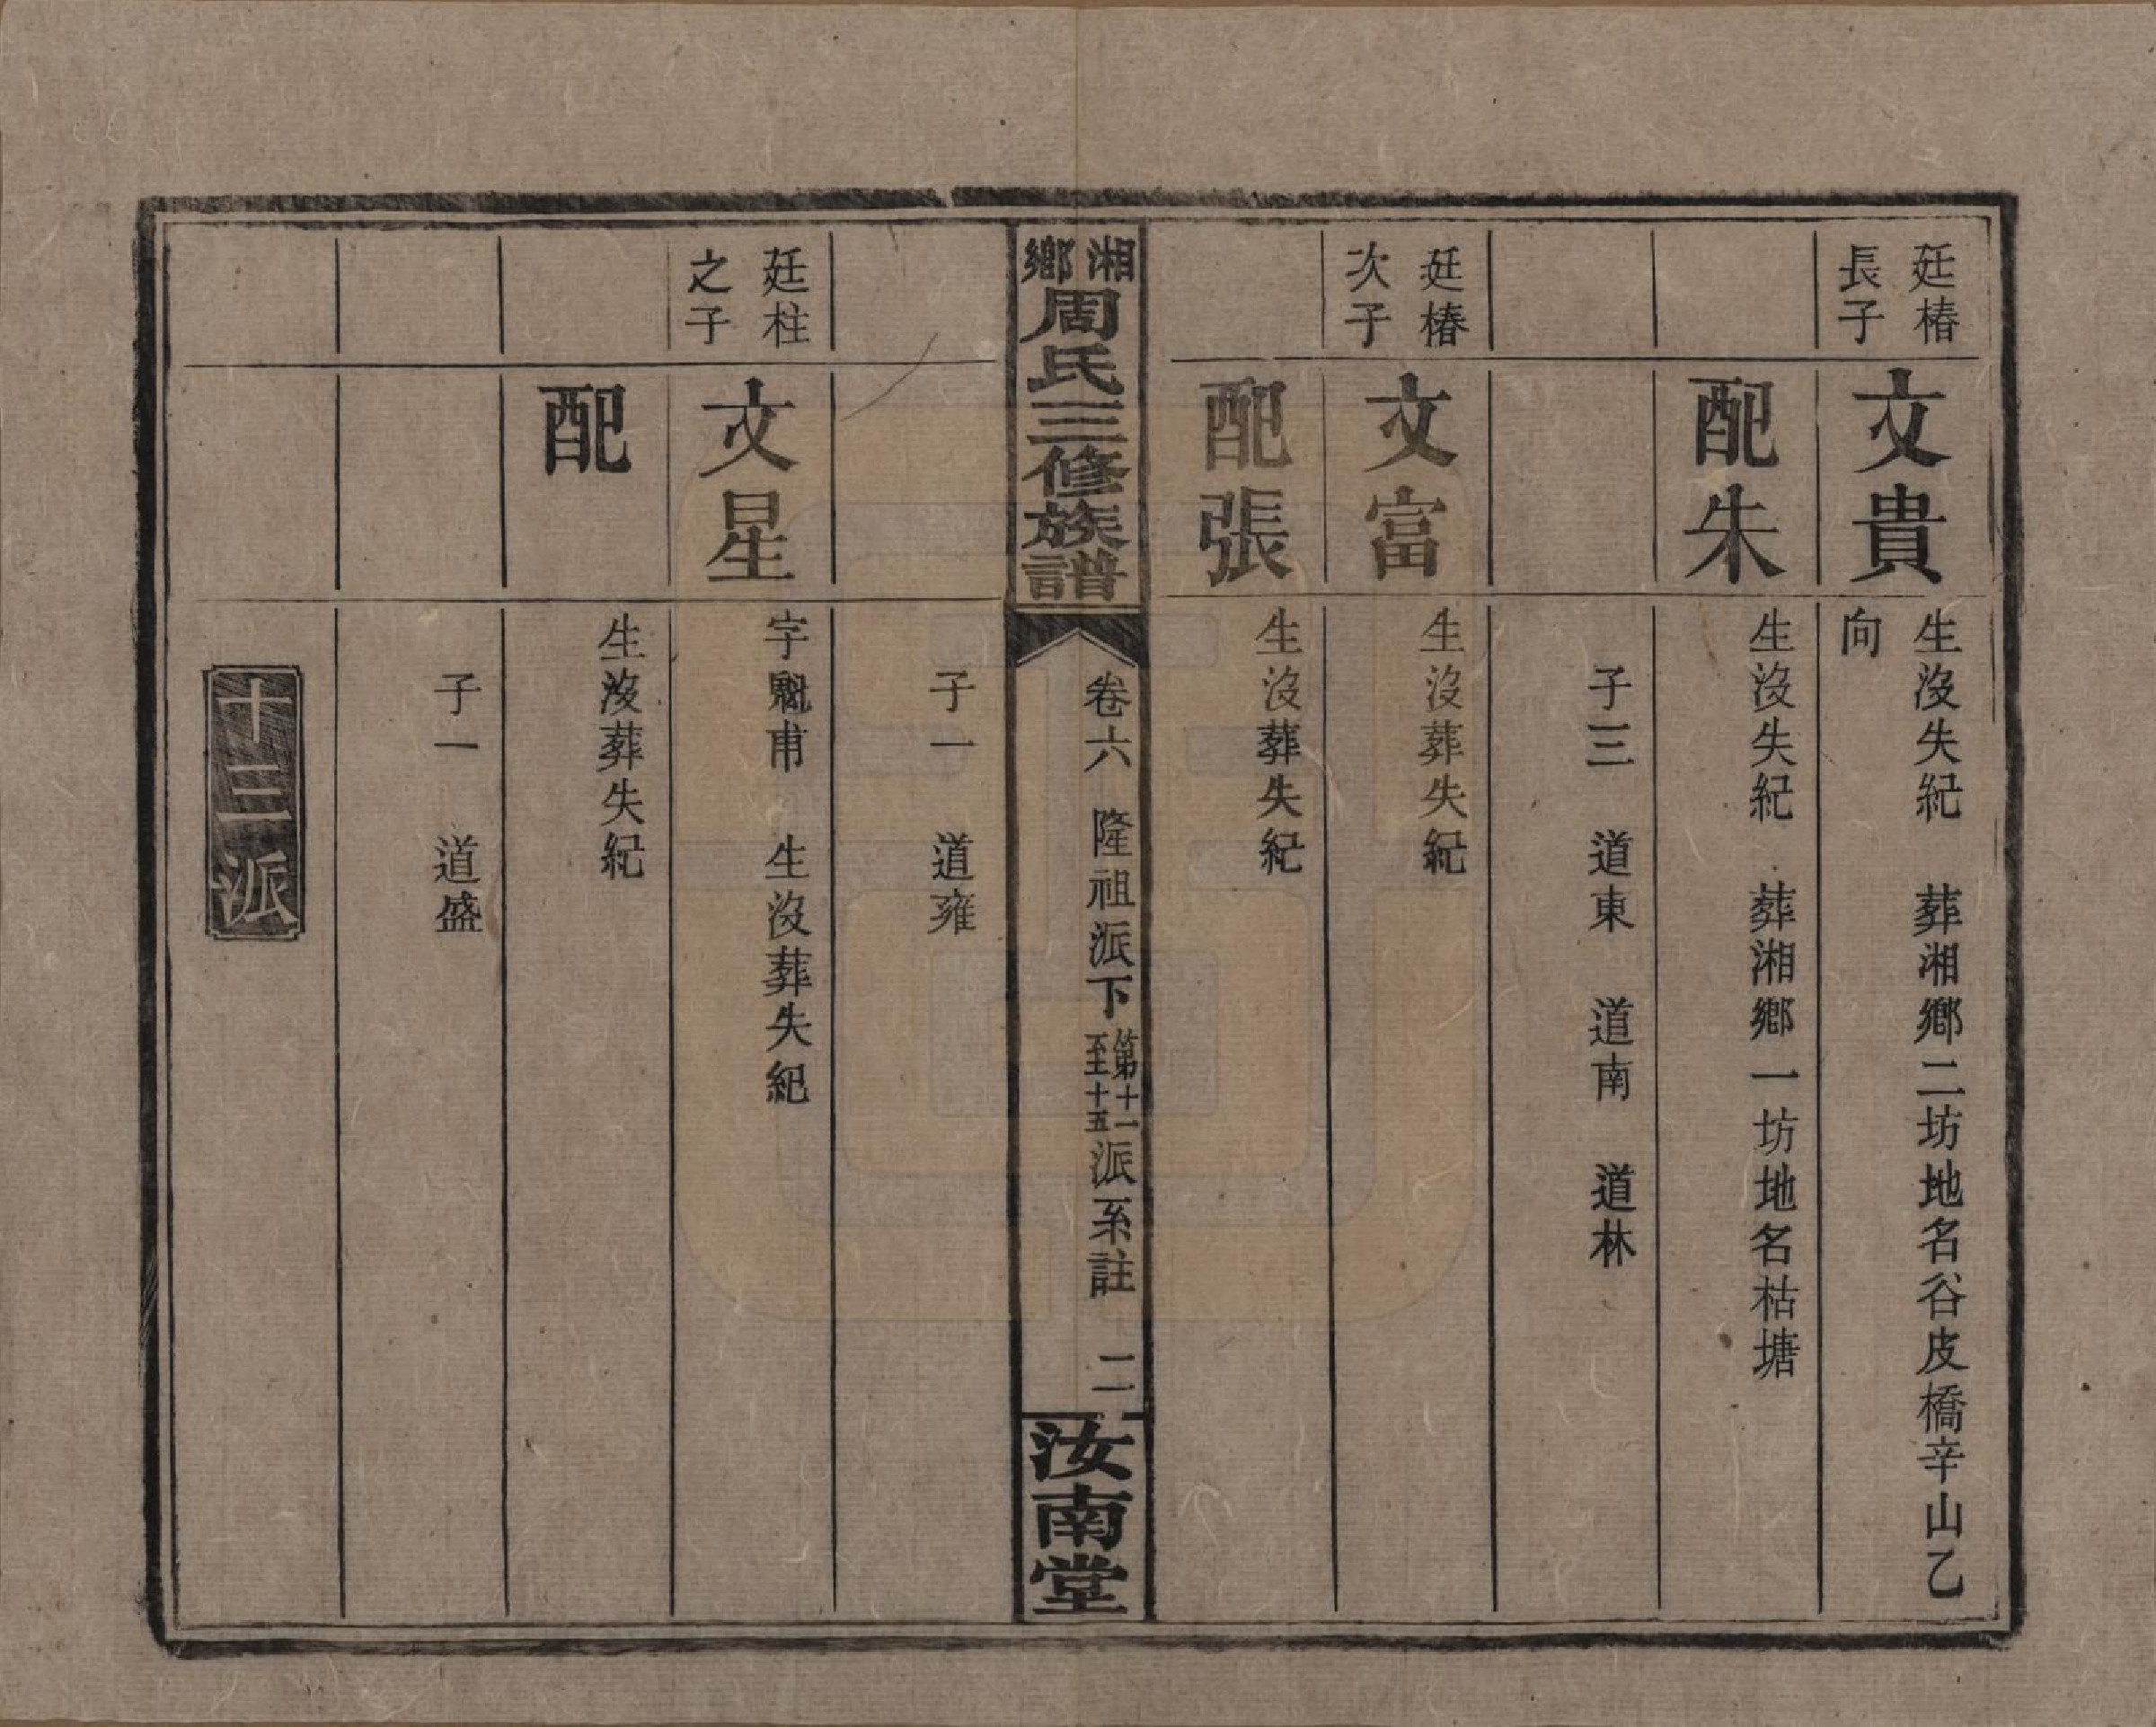 廷椿
長子
文貴
生沒失紀　葬湘鄉二坊地名谷皮橋辛山乙
向
配朱
生沒失紀　葬湘鄉一坊地名枯塘
子三　道東　道南　道林
廷椿
次子
文富
生沒葬失紀
配張
生沒葬失紀
湘鄉
周氏三修族譜
卷六　隆祖派下
第十一
至十五
派系註　二
汝南堂
子一　道雍
廷柱
之子
文星
字魁甫　生沒葬失紀
配
生沒葬失紀
子一　道盛
十三派